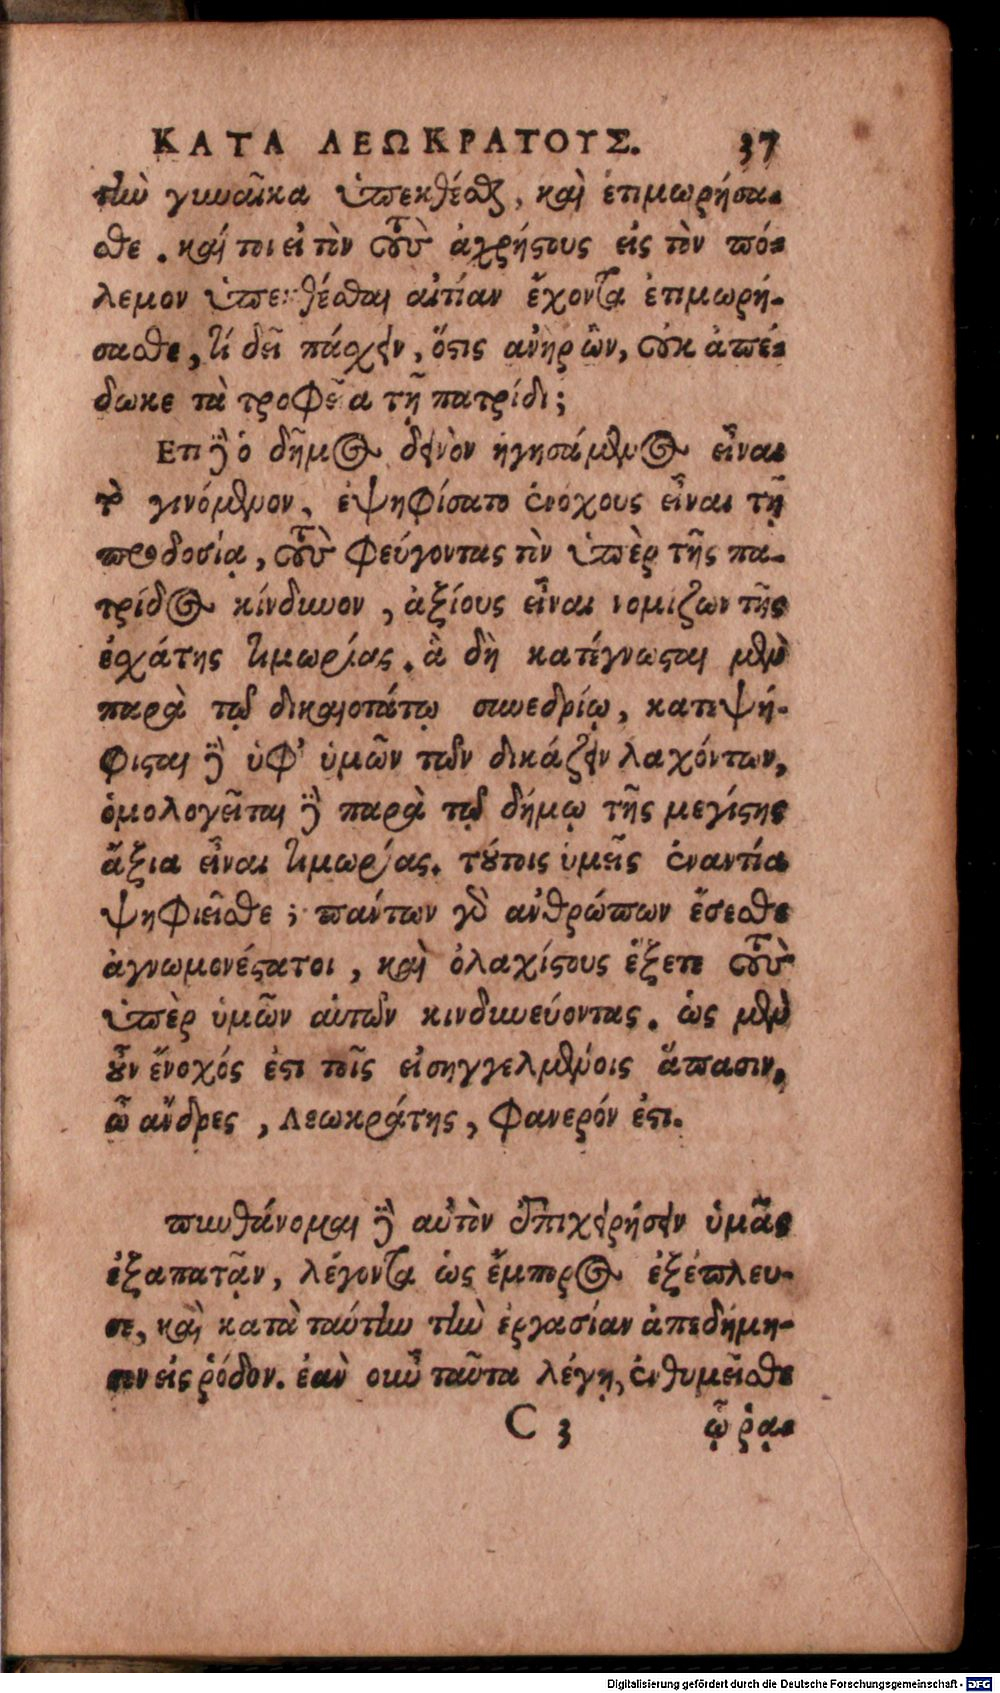 ΚΑΤΑ ΛΕΩΚΡΑΤΟΥΣ. 37
τὴν γυναῖκα ὑπεκθέσθαι, καὶ ἐτιμωρήσα-
σθε. καί τοι εἰ τὸν τοὺς ἀχρήστους εἰς τὸν πό-
λεμον ὑπεκθέσθαι αἰτίαν ἔχοντα ἐτιμωρή-
σασθε, τί δεῖ πάσχειν, ὅστις ἀνὴρ ὢν, οὐκ ἀπέ-
δωκε τὰ τροφεῖα τῇ πατρίδι;
Ετι δὲ ὁ δῆμος δεινὸν ἡγησάμενος εἶναι
τὸ γινόμενον, ἐψηφίσατο ἐνόχους εἶναι τῇ
προδοσίᾳ, τοὺς φεύγοντας τὸν ὑπὲρ τῆς πα-
τρίδος κίνδυνον, ἀξίους εἶναι νομίζων τῆς
ἐσχάτης τιμωρίας. ἃ δὴ κατέγνωσται μὲν
παρὰ τῷ δικαιοτάτῳ συνεδρίῳ, κατεψή-
φισται δὲ ὑφ' ὑμῶν τῶν δικάζειν λαχόντων,
ὁμολογεῖται δὲ παρὰ τῷ δήμῳ τῆς μεγίστης
ἄξια εἶναι τιμωρίας. τούτοις ὑμεῖς ἐναντία
ψηφιεῖσθε; πάντων γὰρ ἀνθρώπων ἔσεσθε
ἀγνωμονέστατοι, καὶ ὀλαχίστους ἕξετε τοὺς
ὑπὲρ ὑμῶν αὐτῶν κινδυνεύοντας. ὡς μὲν
οὖν ἔνοχός ἐστι τοῖς εἰσηγγελμένοις ἅπασιν,
ὦ ἄνδρες, Λεωκράτης, φανερόν ἐστι.
πυνθάνομαι δὲ αὐτὸν ἐπιχειρήσειν ὑμᾶς
ἐξαπατᾷν, λέγοντα ὡς ἔμπορος ἐξέπλευ-
σε, καὶ κατὰ ταύτην τὴν ἐργασίαν ἀπεδήμη-
σεν εἰς ῥόδον. ἐὰν οὖν ταῦτα λέγῃ, ἐνθυμεῖσθε
C 3 ᾧ ῥᾳ-
Digitalisierung gefördert durch die Deutsche Forschungsgemeinschaft - DFG